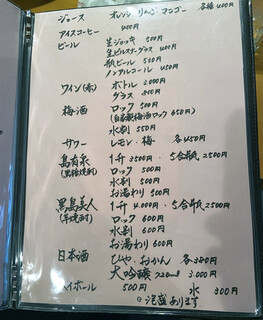 ジュース オレンジ・りんご・マンゴー 各種 400円
アイスコーヒー 400円
ビール 生ジョッキ 500円
生ピルスナーグラス 400円
瓶ビール 500円
ノンアルコール 450円
ワイン(赤) ボトル 2.000円
グラス 300円
梅酒 ロック 500円
(自家製梅酒ロック 650円)
水割 550円
サワー レモン・梅 各450円
島有泉 1升 3500円・5合瓶 2500円
(黒糖焼酎) ロック 500円
水割 500円
お湯わり 500円
黒島美人 1升 4.000円・5合瓶 2500円
(芋焼酎) ロック 600円
水割 600円
お湯わり 600円
日本酒 ひや、おかん 各300円
大吟醸 720ml 3.000円
ハイボール 500円 氷 300円
あります